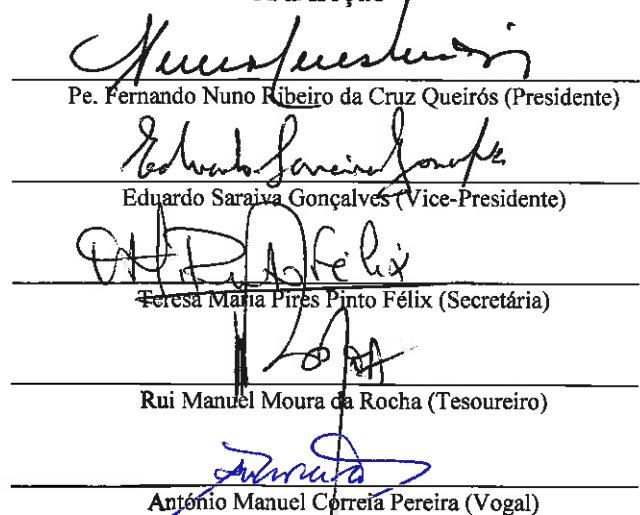 Pe. Fernando Nuno Ribeiro da Cruz Queirós (Presidente)
Eduardo Saraiva Gonçalves
Eduardo Saraiva Gonçalves (Vice-Presidente)
Félix
Teresa Maria Pires Pinto Félix (Secretária)
Rui Manuel Moura da Rocha (Tesoureiro)
António Manuel Correia Pereira (Vogal)